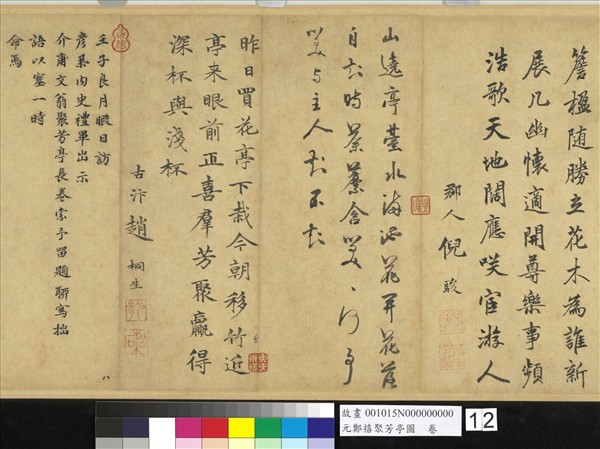 簷楹随勝立花木為誰新
展几幽懷適開尊樂事頻
浩歌天地闊應咲宦游人
郡人倪駿
山遠亭臺水滿池花開花落
自知時
昨日買花亭下栽今朝移竹近
亭来眼前正喜羣芳聚贏得
深杯與淺杯
古汴趙桐生
壬子良月暇日訪
彦系内史禮畢出示
介甫文翁聚芳亭長卷索予留題聊寫拙
語以塞一時
命焉
八
故畫 001015N000000000
元鄭禧聚芳亭圖 卷
12